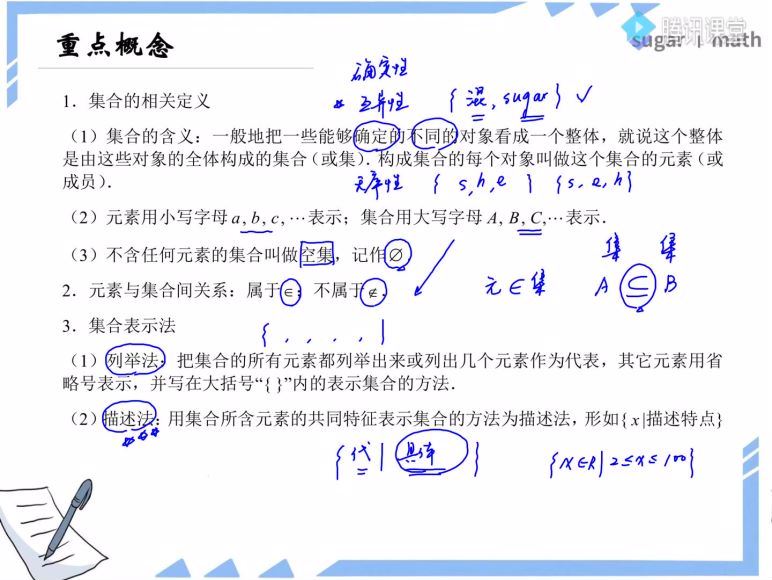 重点概念
腾讯课堂
sugar | math
确定性
* 互异性 {混, sugar} ✓
1．集合的相关定义
（1）集合的含义：一般地把一些能够确定的不同的对象看成一个整体，就说这个整体
是由这些对象的全体构成的集合（或集）．构成集合的每个对象叫做这个集合的元素（或
成员）．
无序性 { s, h, e } {s, e, h}
（2）元素用小写字母 a, b, c, ⋯表示；集合用大写字母 A, B, C,⋯表示．
（3）不含任何元素的集合叫做空集，记作∅
集 集
2．元素与集合间关系：属于∈；不属于∉．
元∈集 A ⊆ B
3．集合表示法
{ , , , , }
（1）列举法：把集合的所有元素都列举出来或列出几个元素作为代表，其它元素用省
略号表示，并写在大括号“{ }”内的表示集合的方法．
（2）描述法：用集合所含元素的共同特征表示集合的方法为描述法，形如{ x |描述特点}
{代 | 具体 } {x∈R | 2≤x≤100}